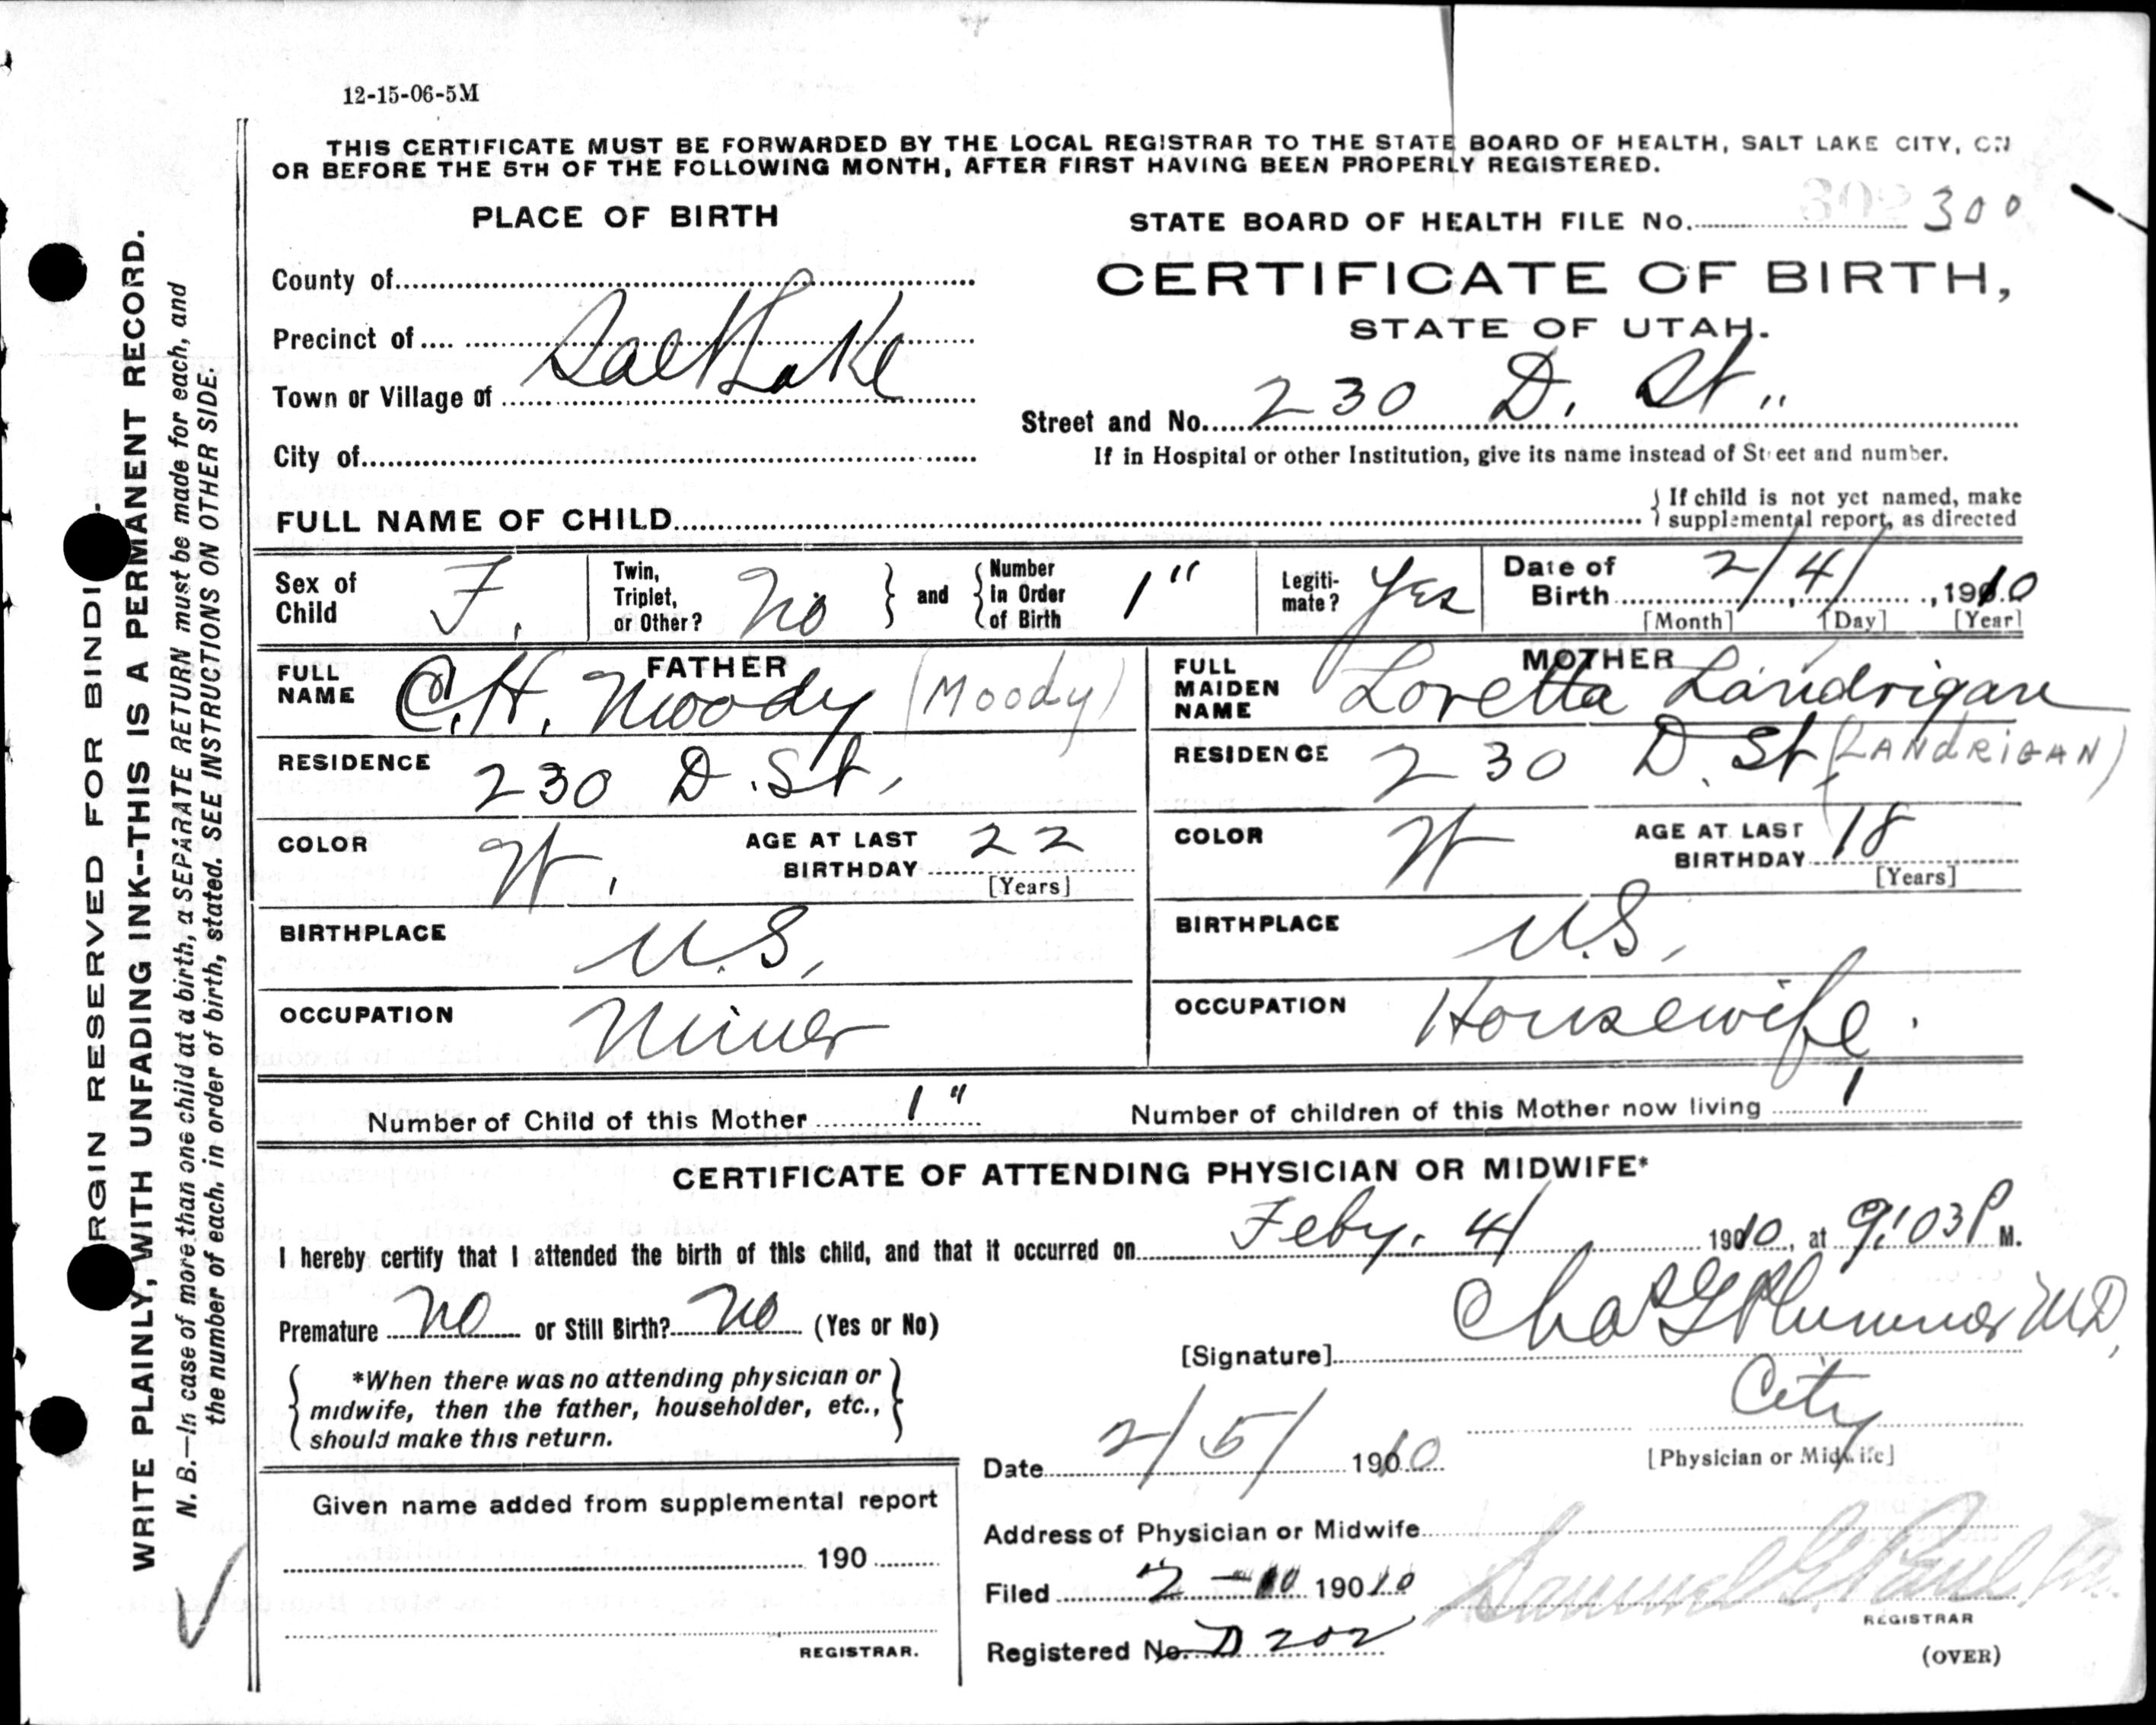 12-15-06-5M
THIS CERTIFICATE MUST BE FORWARDED BY THE LOCAL REGISTRAR TO THE STATE BOARD OF HEALTH, SALT LAKE CITY, ON
OR BEFORE THE 5TH OF THE FOLLOWING MONTH, AFTER FIRST HAVING BEEN PROPERLY REGISTERED.
PLACE OF BIRTH
County of
Precinct of
Salt Lake
Town or Village of
City of
STATE BOARD OF HEALTH FILE No. 302 300
CERTIFICATE OF BIRTH,
STATE OF UTAH.
Street and No. 230 D. St.,
If in Hospital or other Institution, give its name instead of Street and number.
FULL NAME OF CHILD
If child is not yet named, make
supplemental report, as directed
Sex of Child F.
Twin, Triplet, or Other? No and Number in Order of Birth 1"
Legitimate? Yes
Date of Birth 2/4/, 1910
[Month] [Day] [Year]
FATHER
FULL NAME C.H. Moody (Moody)
RESIDENCE 230 D. St.,
COLOR W. AGE AT LAST BIRTHDAY 22
[Years]
BIRTHPLACE U.S.,
OCCUPATION Miner
MOTHER
FULL MAIDEN NAME Loretta Landrigan
RESIDENCE 230 D. St, (LANDRIGAN)
COLOR W AGE AT LAST BIRTHDAY 18
[Years]
BIRTHPLACE U.S,
OCCUPATION Housewife.
Number of Child of this Mother 1"
Number of children of this Mother now living 1
CERTIFICATE OF ATTENDING PHYSICIAN OR MIDWIFE*
I hereby certify that I attended the birth of this child, and that it occurred on Feby. 4 1910, at 9:03 P M.
Premature No or Still Birth? No (Yes or No)
*When there was no attending physician or
midwife, then the father, householder, etc.,
should make this return.
[Signature] Chas G Plummer M.D,
City
[Physician or Midwife]
Date 2/5/ 1910
Address of Physician or Midwife
Filed 2-10 1910
Samuel G. Paul
REGISTRAR
Registered No. D 202
(OVER)
Given name added from supplemental report
190
REGISTRAR.
RGIN RESERVED FOR BINDI
WRITE PLAINLY, WITH UNFADING INK--THIS IS A PERMANENT RECORD.
N. B.—In case of more than one child at a birth, a SEPARATE RETURN must be made for each, and
the number of each, in order of birth, stated. SEE INSTRUCTIONS ON OTHER SIDE.